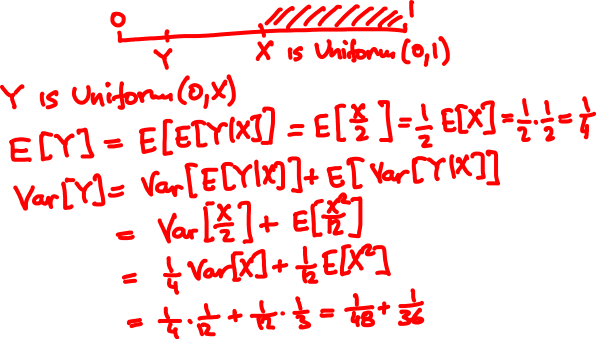 0 1
Y X is Uniform (0,1)
Y is Uniform (0,X)
E[Y] = E[E[Y|X]] = E[X/2] = 1/2 E[X] = 1/2 · 1/2 = 1/4
Var[Y] = Var[E[Y|X]] + E[Var[Y|X]]
= Var[X/2] + E[X²/12]
= 1/4 Var[X] + 1/12 E[X²]
= 1/4 · 1/12 + 1/12 · 1/3 = 1/48 + 1/36